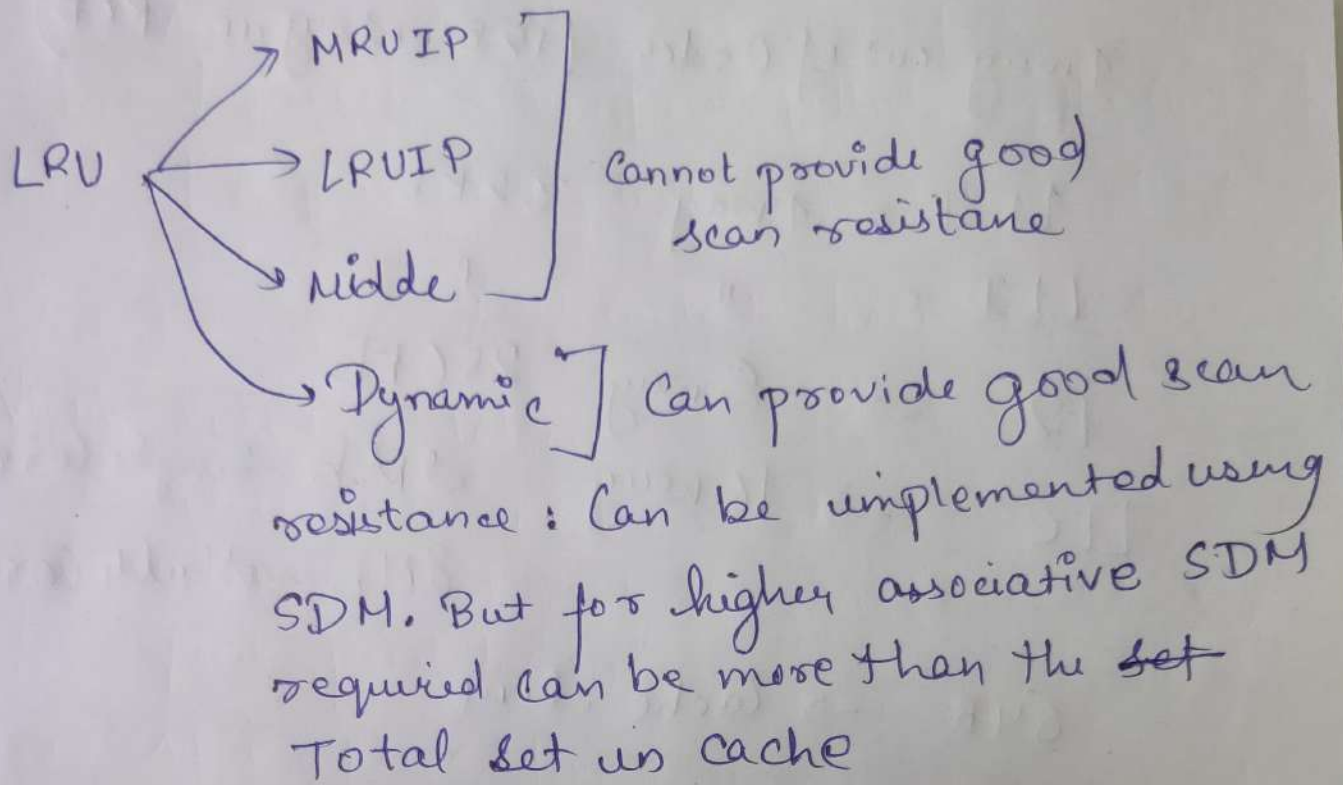 MRUIP
LRU
LRUIP
Cannot provide good
scan resistane
Midde
Dynamic Can provide good scan
resistance : Can be implemented using
SDM. But for higher associative SDM
required can be more than the set
Total set in cache